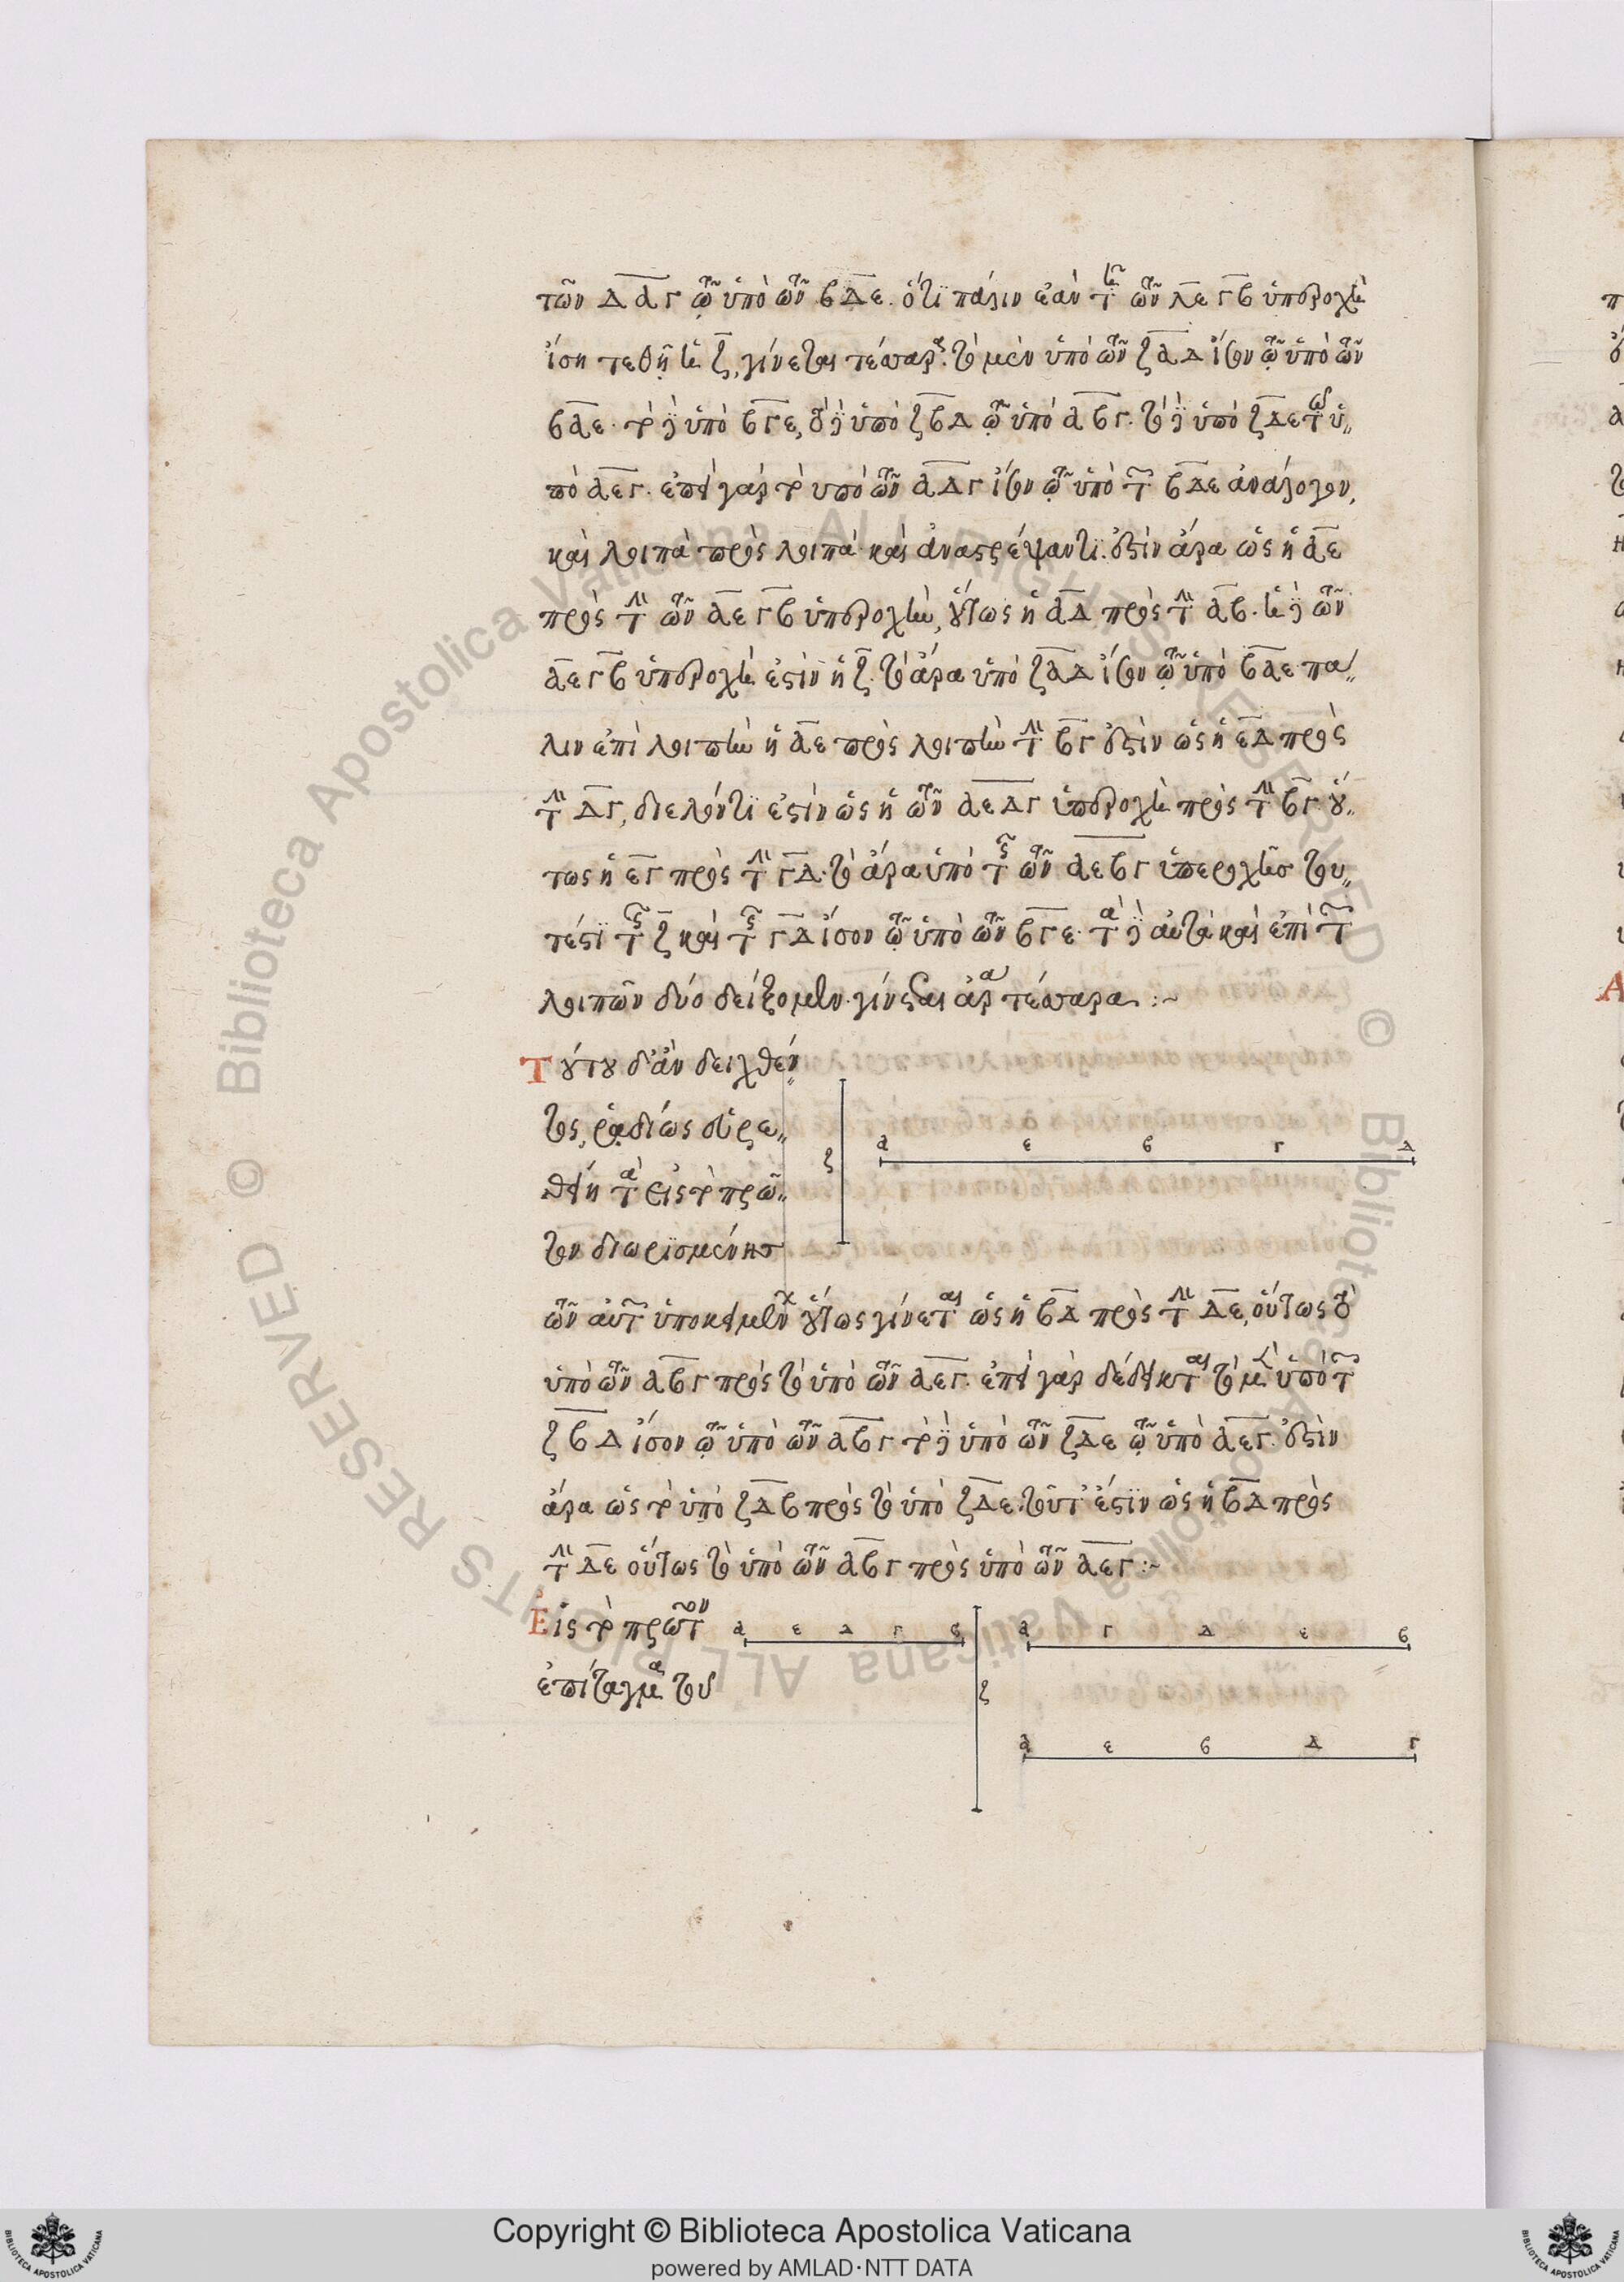 τῶν ΔΑΓ τῷ ὑπὸ τῶν ΒΔΕ. ὅτι πάλιν ἐὰν τῇ τῶν ΑΕ ΓΒ ὑπεροχῇ
ἴση τεθῇ ἡ Ζ, γίνεται τέσσαρα. τὸ μὲν ὑπὸ τῶν ΖΑΔ ἴσον τῷ ὑπὸ τῶν
ΒΑΕ. τὸ δὲ ὑπὸ ΒΓΕ, τὸ δὲ ὑπὸ ΖΒΔ τῷ ὑπὸ ΑΒΓ. τὸ δὲ ὑπὸ ΖΔΕ τῷ ὑ„
πὸ ΑΕΓ. ἐπεὶ γὰρ τὸ ὑπὸ τῶν ΑΔΓ ἴσον τῷ ὑπὸ τῶν ΒΔΕ ἀνάλογον,
καὶ λοιπὰ πρὸς λοιπὰ καὶ ἀναστρέψαντι. ἐστὶν ἄρα ὡς ἡ ΑΕ
πρὸς τὴν τῶν ΑΕ ΓΒ ὑπεροχὴν, οὕτως ἡ ΑΔ πρὸς τὴν ΑΒ. ἡ δὲ τῶν
ΑΕ ΓΒ ὑπεροχὴ ἐστὶν ἡ Ζ. τὸ ἄρα ὑπὸ ΖΑΔ ἴσον τῷ ὑπὸ ΒΑΕ. πά„
λιν ἐπὶ λοιπὴν ἡ ΑΕ πρὸς λοιπὴν τὴν ΒΓ ἐστὶν ὡς ἡ ΕΔ πρὸς
τὴν ΔΓ, διελόντι ἐστὶν ὡς ἡ τῶν ΑΕΔΓ ὑπεροχὴ πρὸς τὴν ΒΓ οὕ„
τως ἡ ΕΓ πρὸς τὴν ΓΔ. τὸ ἄρα ὑπὸ τῆς τῶν ΑΕ ΒΓ ὑπεροχῆς του„
τέστι τῆς Ζ καὶ τῆς ΓΔ ἴσον τῷ ὑπὸ τῶν ΒΓΕ. τὰ δὲ αὐτὰ καὶ ἐπὶ τῶν
λοιπῶν δύο δείξομεν. γίνεται ἄρα τέσσαρα :~
Τούτου δ' ἂν δειχθέν„
τος, ῥᾳδίως εὑρε„
θείη τὰ εἰς τὸ πρῶ„
τον διωρισμένης
Ζ
Α Ε Β Γ Δ
τῶν αὐτῶν ὑποκειμένων οὕτως γίνεται ὡς ἡ ΒΔ πρὸς τὴν ΔΕ, οὕτως τὸ
ὑπὸ τῶν ΑΒΓ πρὸς τὸ ὑπὸ τῶν ΑΕΓ. ἐπεὶ γὰρ δέδεικται τὸ μὲν ὑπὸ τῶν
ΖΒΔ ἴσον τῷ ὑπὸ τῶν ΑΒΓ τὸ δὲ ὑπὸ τῶν ΖΔΕ τῷ ὑπὸ ΑΕΓ. ἐστὶν
ἄρα ὡς τὸ ὑπὸ ΖΔΒ πρὸς τὸ ὑπὸ ΖΔΕ, τοῦτ' ἔστιν ὡς ἡ ΒΔ πρὸς
τὴν ΔΕ οὕτως τὸ ὑπὸ τῶν ΑΒΓ πρὸς ὑπὸ τῶν ΑΕΓ :~
Εἰς τὸ πρῶτον
ἐπίταγμα τοῦ
Α Ε Δ Γ Β
Ζ
Α Γ Δ Ε Β
Α Ε Β Δ Γ
Copyright © Biblioteca Apostolica Vaticana
powered by AMLAD·NTT DATA